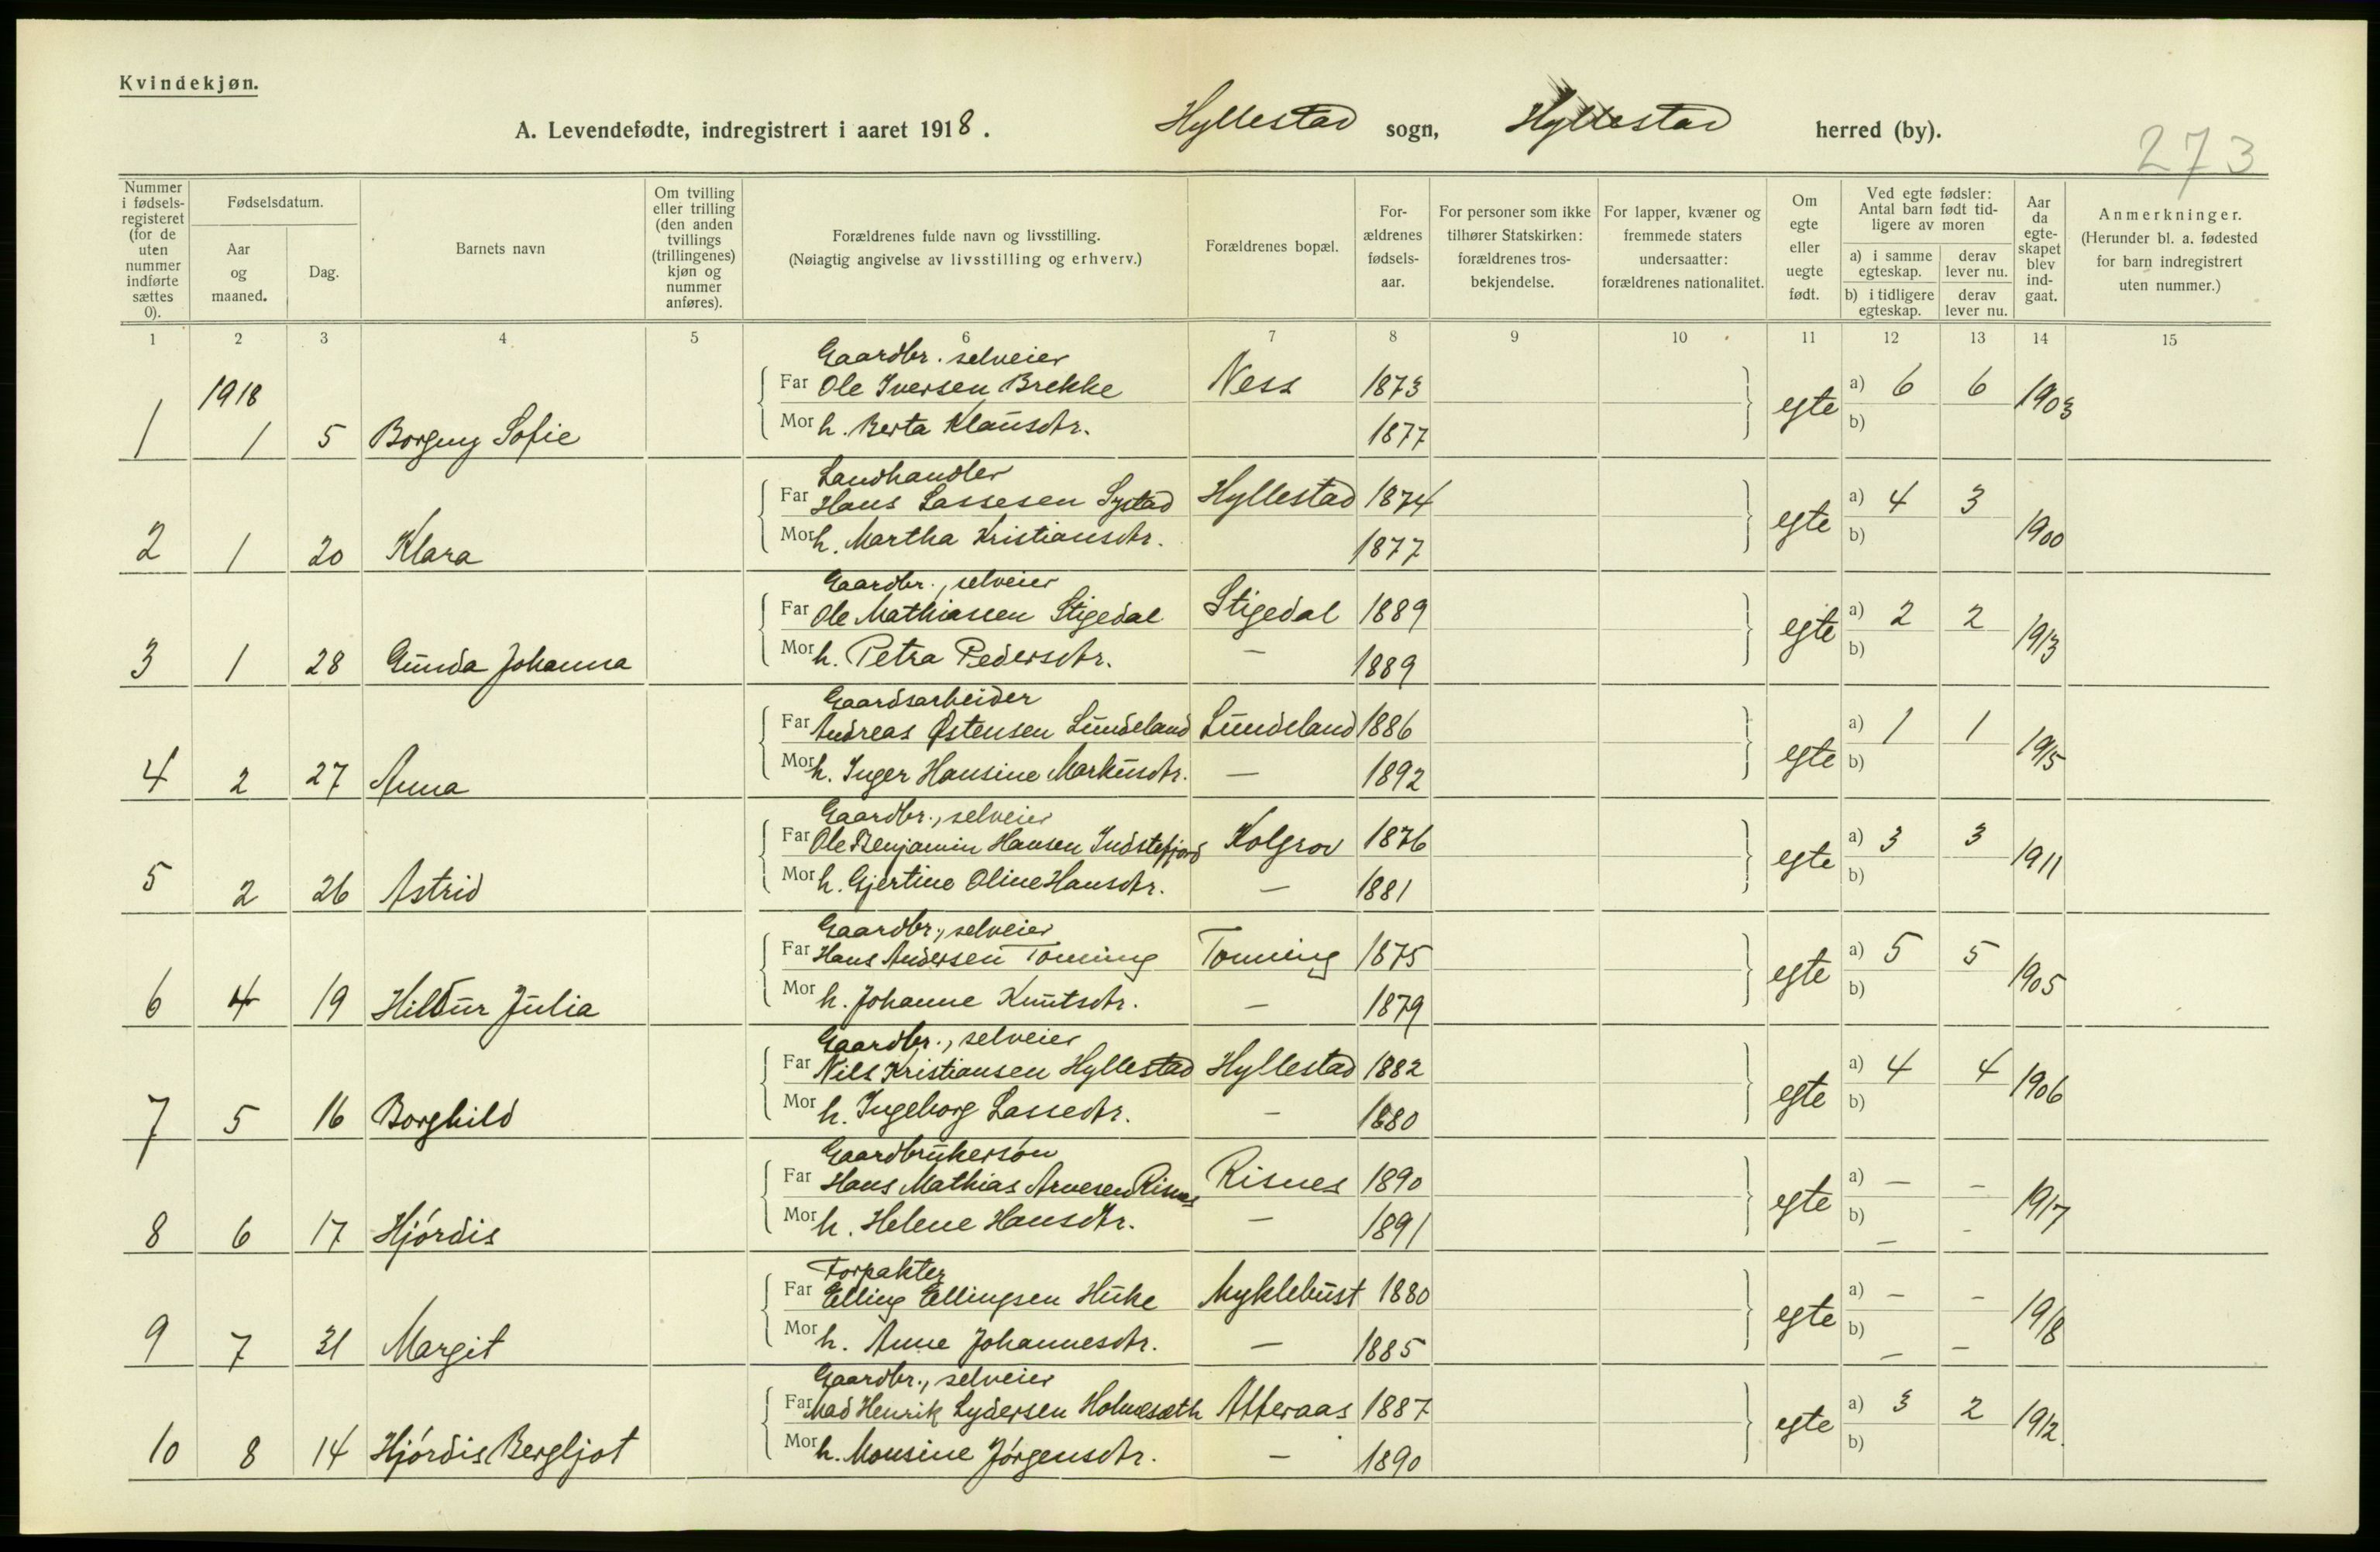 Kvindekjøn.
A. Levendefødte, indregistrert i aaret 1918. Hyllestad sogn, Hyllestad herred (by).
273
Nummer i fødsels-registeret (for de uten nummer indførte sættes 0).
Fødselsdatum.
Aar og maaned.
Dag.
Barnets navn
Om tvilling eller trilling (den anden tvillings (trillingenes) kjøn og nummer anføres).
Forældrenes fulde navn og livsstilling.
(Nøiagtig angivelse av livsstilling og erhverv.)
Forældrenes bopæl.
For-ældrenes fødsels-aar.
For personer som ikke tilhører Statskirken: forældrenes tros-bekjendelse.
For lapper, kvæner og fremmede staters undersaatter: forældrenes nationalitet.
Om egte eller uegte født.
Ved egte fødsler: Antal barn født tid-ligere av moren
a) i samme egteskap.
derav lever nu.
b) i tidligere egteskap.
derav lever nu.
Aar da egte-skapet blev ind-gaat.
Anmerkninger.
(Herunder bl. a. fødested for barn indregistrert uten nummer.)
1 2 3 4 5 6 7 8 9 10 11 12 13 14 15
Gaardbr. selveier
1918 Far Ole Iversen Brekke Ness 1873 egte a) 6 6 1903
1 1 5 Borgny Sofie Mor h. Berta Klausdtr. 1877 b)
Landhandler
Far Hans Lassesen Systad Hyllestad 1874 egte a) 4 3 1900
2 1 20 Klara Mor h. Martha Kristiansdtr. 1877 b)
Gaardbr., selveier
Far Ole Mathiassen Stigedal Stigedal 1889 egte a) 2 2 1913
3 1 28 Gunda Johanna Mor h. Petra Pedersdtr. — 1889 b)
Gaardsarbeider
Far Andreas Østensen Lundeland Lundeland 1886 egte a) 1 1 1915
4 2 27 Anna Mor h. Inger Hansine Markusdtr. — 1892 b)
Gaardbr., selveier
Far Ole Benjamin Hansen Indstefjord Kolgrov 1876 egte a) 3 3 1911
5 2 26 Astrid Mor h. Gjertine Oline Hansdtr. — 1881 b)
Gaardbr., selveier
Far Hans Andersen Tonning Tonning 1875 egte a) 5 5 1905
6 4 19 Hildur Julia Mor h. Johanne Knutsdtr. — 1879 b)
Gaardbr., selveier
Far Nils Kristiansen Hyllestad Hyllestad 1882 egte a) 4 4 1906
7 5 16 Borghild Mor h. Ingeborg Lassedtr. — 1880 b)
Gaardbrukersøn
Far Hans Mathias Arvesen Risnes Risnes 1890 egte a) — — 1917
8 6 17 Hjórdis Mor h. Helene Hansdtr. — 1891 b) — —
Forpakter
Far Elling Ellingsen Huke Myklebust 1880 egte a) — — 1918
9 7 31 Margit Mor h. Anne Johannesdtr. — 1885 b) — —
Gaardbr., selveier
Far Mad Henrik Lydersen Holmesæth Atteraas 1887 egte a) 3 2 1912.
10 8 14 Hjórdis Bergljot Mor h. Monsine Jórgensdtr. — 1890 b)